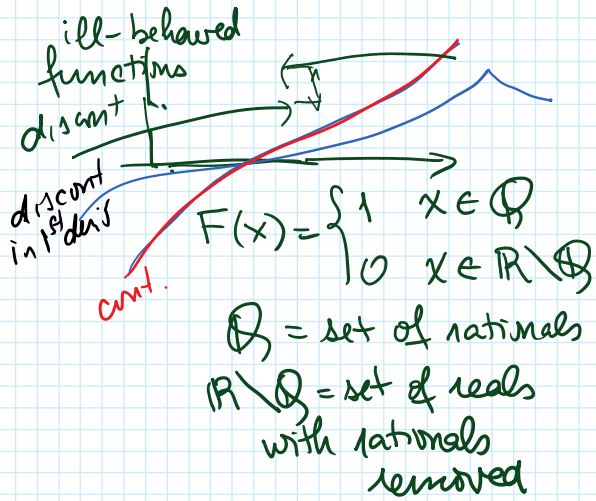 ill-behaved
functions
discont
discont
in 1st deriv
cont.
F(x) = { 1 x ∈ ℚ
0 x ∈ ℝ\ℚ
ℚ = set of rationals
ℝ\ℚ = set of reals
with rationals
removed